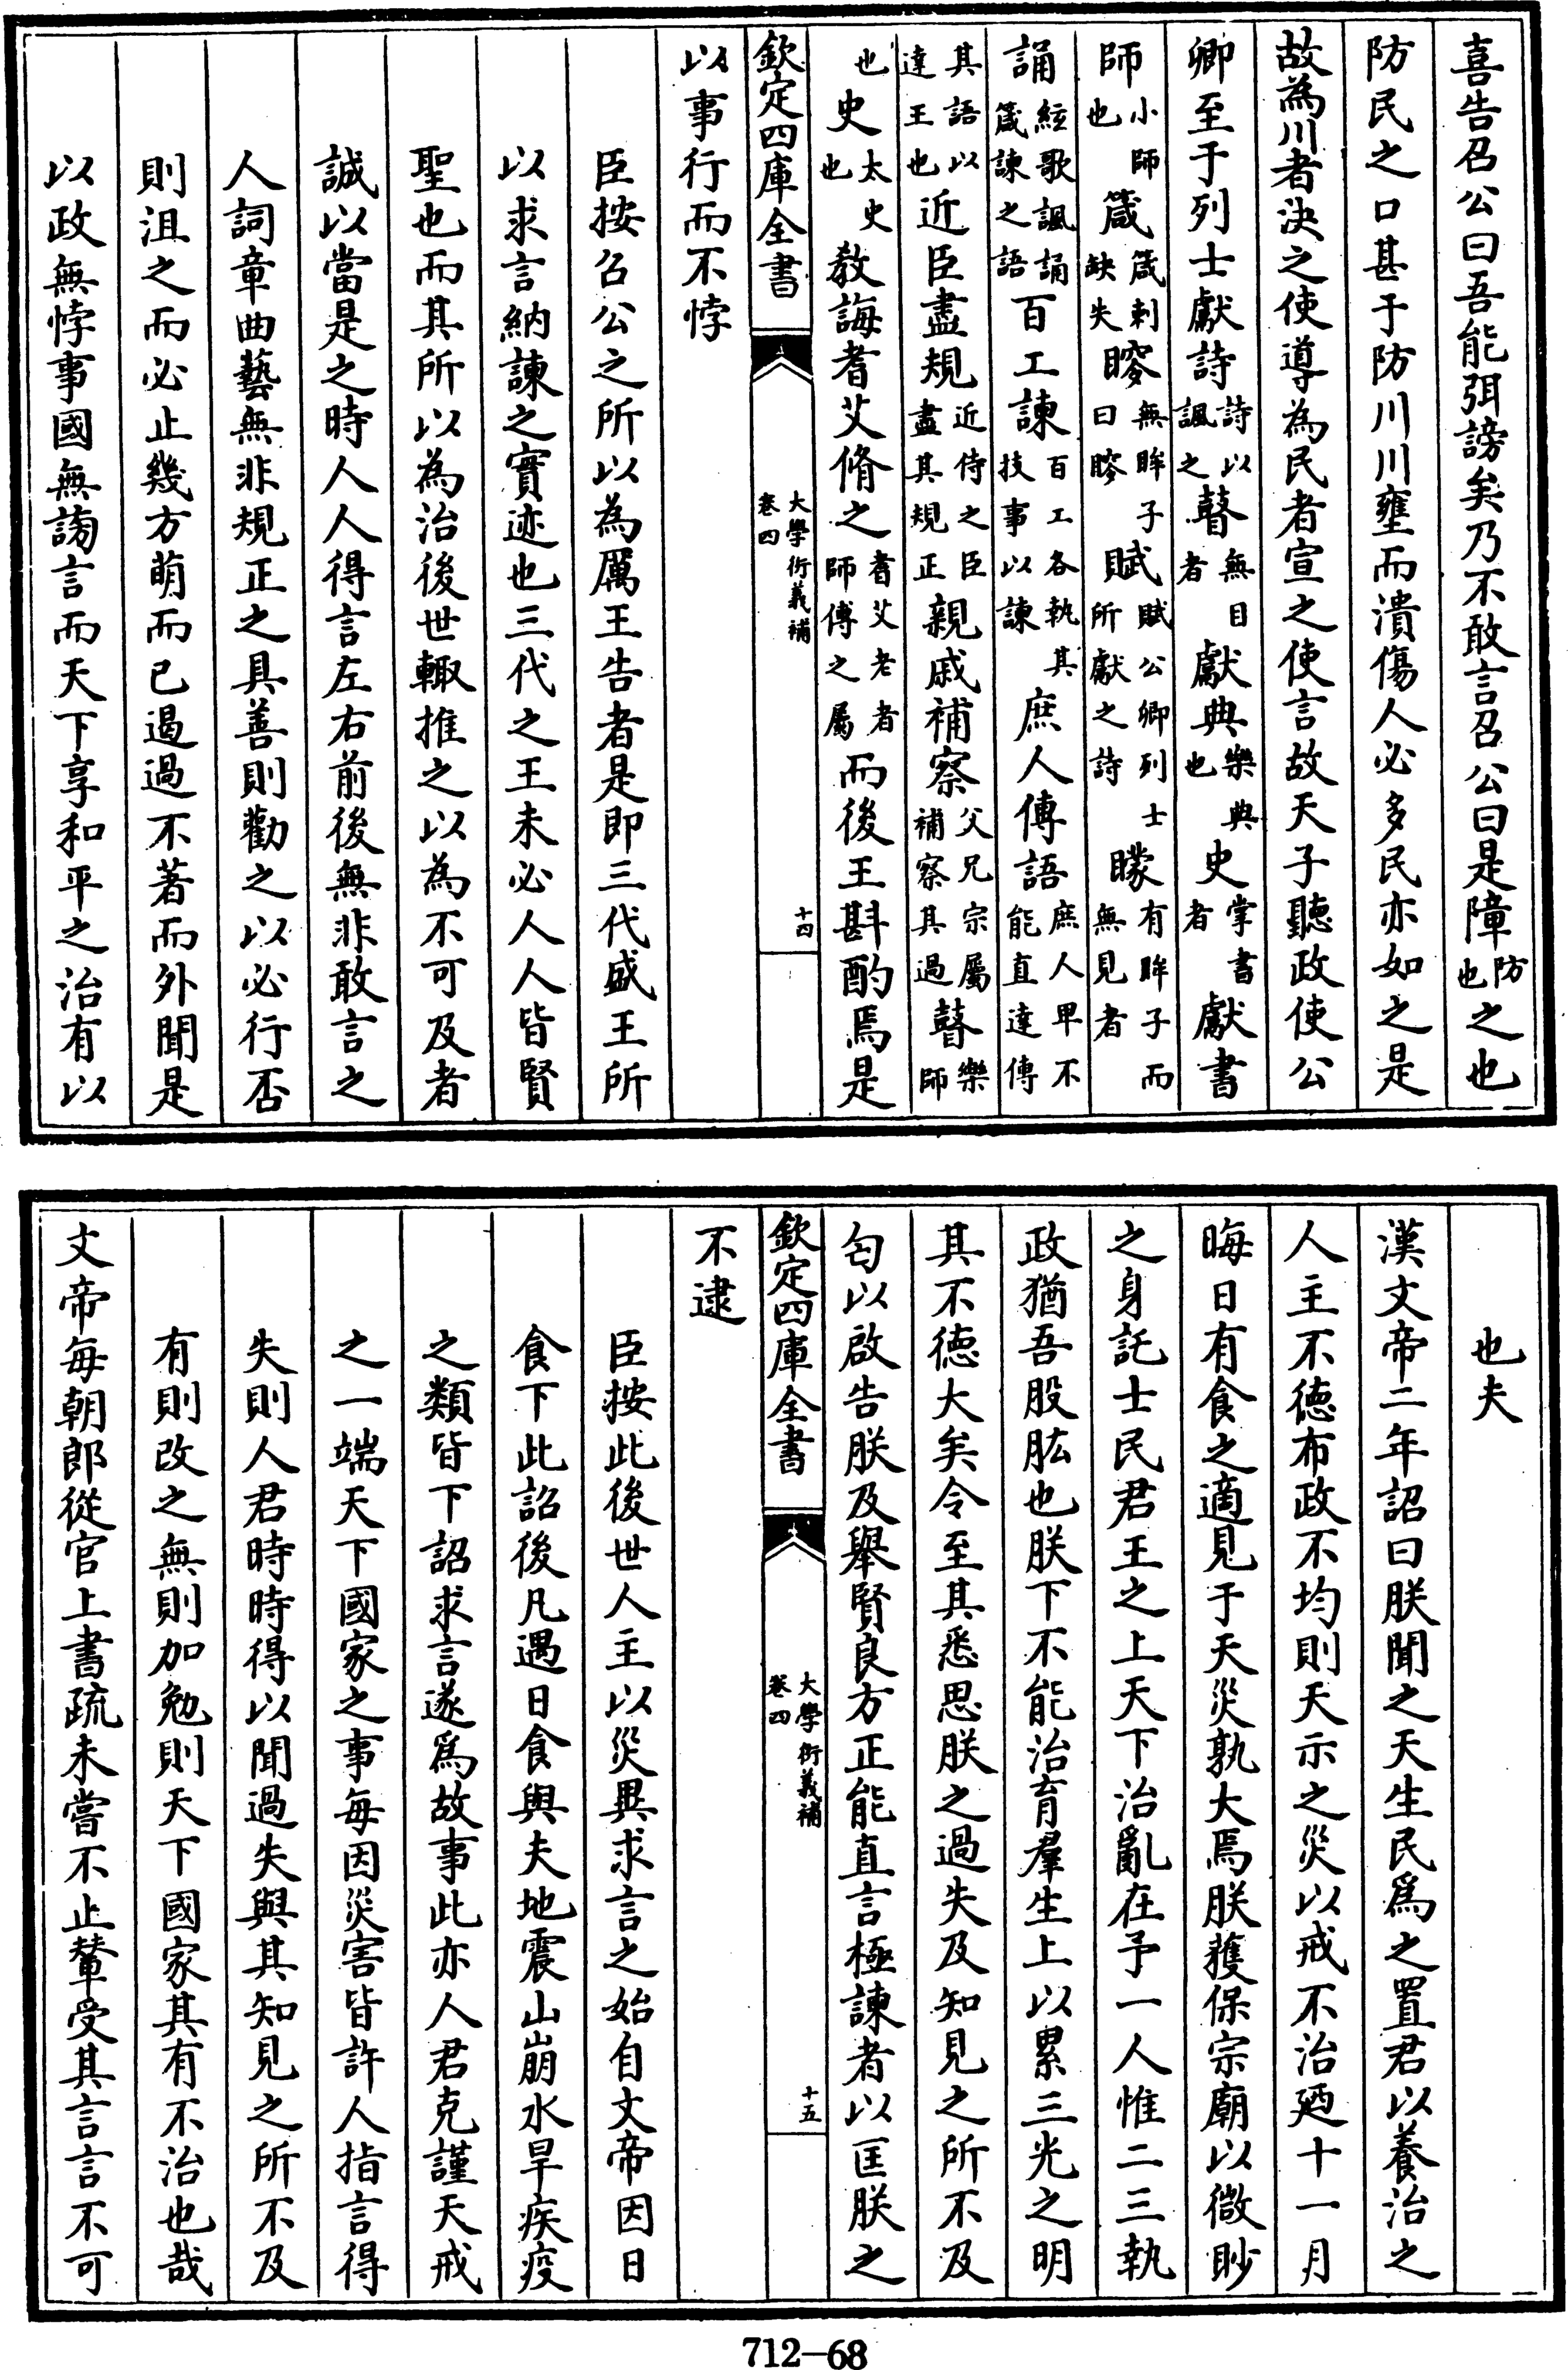 喜告召公曰吾能弭謗矣乃不敢言召公曰是障防也之也
防民之口甚于防川川壅而潰傷人必多民亦如之是
故為川者決之使導為民者宣之使言故天子聽政使公
卿至于列士獻詩詩以諷之瞽無目者獻典樂典也史掌書者獻書
師小師也箴箴刺缺失瞍無眸子曰瞍賦賦公卿列士所獻之詩矇有眸子而無見者
誦絃歌諷誦箴諫之語百工諫百工各執其技事以諫庶人傳語庶人卑不能直達傳
其語以達王也近臣盡規近侍之臣盡其規正親戚補察父兄宗屬補察其過瞽樂師
也史太史也教誨耆艾脩之耆艾老者師傅之屬而後王斟酌焉是
欽定四庫全書 大學衍義補 卷四 十四
以事行而不悖
臣按召公之所以為厲王告者是即三代盛王所
以求言納諫之實迹也三代之王未必人人皆賢
聖也而其所以為治後世輙推之以為不可及者
誠以當是之時人人得言左右前後無非敢言之
人詞章曲藝無非規正之具善則勸之以必行否
則沮之而必止幾方萌而已遏過不著而外聞是
以政無悖事國無謗言而天下享和平之治有以
也夫
漢文帝二年詔曰朕聞之天生民爲之置君以養治之
人主不德布政不均則天示之災以戒不治廼十一月
晦日有食之適見于天災孰大焉朕獲保宗廟以微眇
之身託士民君王之上天下治亂在予一人惟二三執
政猶吾股肱也朕下不能治育羣生上以累三光之明
其不德大矣令至其悉思朕之過失及知見之所不及
匄以啟告朕及舉賢良方正能直言極諫者以匡朕之
欽定四庫全書 大學衍義補 卷四 十五
不逮
臣按此後世人主以災異求言之始自文帝因日
食下此詔後凡遇日食與夫地震山崩水旱疾疫
之類皆下詔求言遂爲故事此亦人君克謹天戒
之一端天下國家之事每因災害皆許人指言得
失則人君時時得以聞過失與其知見之所不及
有則改之無則加勉則天下國家其有不治也哉
文帝每朝郎從官上書疏未嘗不止輦受其言言不可
712-68